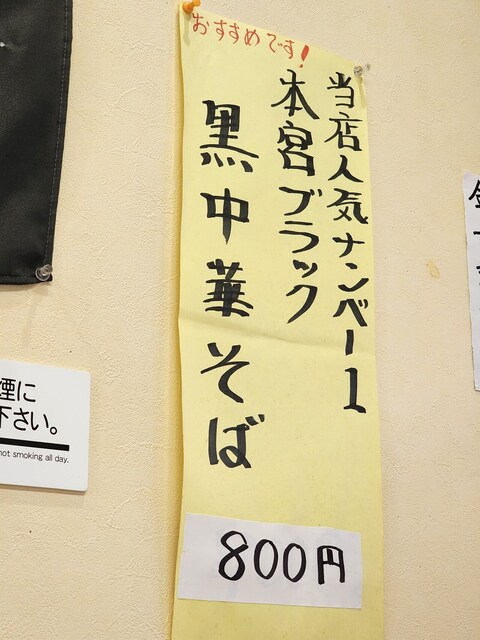 おすすめです!
当店人気ナンバー1
本宮ブラック
黒中華そば
800円
煙に
下さい。
not smoking all day.